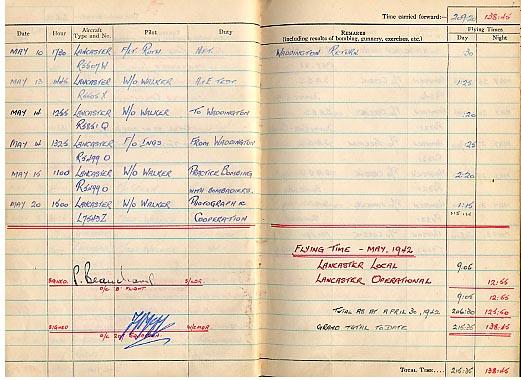 Time carried forward:— 209:20 138:45
Date Hour Aircraft Type and No. Pilot Duty Remarks (including results of bombing, gunnery, exercises, etc.) Flying Times Day Night
MAY 10 1750 LANCASTER F/LT. RUTH NET. WADDINGTON RETURN :30
R5507 W
MAY 13 LANCASTER W/O WALKER A&E TEST. 1:25
MAY 14 1255 LANCASTER W/O WALKER TO WADDINGTON :20
R5551 Q
MAY 14 1325 LANCASTER F/O INGS FROM WADDINGTON :25
R5499 O
MAY 15 1100 LANCASTER W/O WALKER PRACTICE BOMBING 2:20
R5499 O WITH BOMBADIERS.
MAY 20 1500 LANCASTER W/O WALKER PHOTOGRAPHIC 1:15
L7543 Z COOPERATION
FLYING TIME - MAY, 1942
LANCASTER LOCAL 9:05
SIGNED. P. Beauchamp S/LDR. LANCASTER OPERATIONAL 12:55
O/C 'B' FLIGHT
9:05 12:55
TOTAL AS AT APRIL 30, 1942 206:30 125:50
SIGNED W/CMDR. GRAND TOTAL TO DATE 215:35 138:45
O/C 207 SQUADRON.
TOTAL TIME.... 215:35 138:45